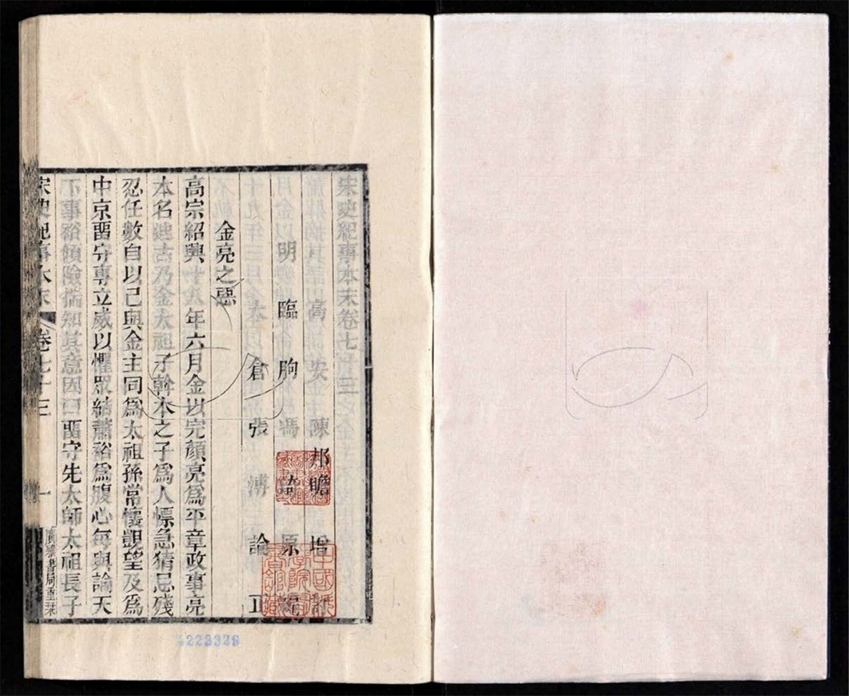 宋史紀事本末卷七十三
高安陳邦瞻增訂
明臨朐馮琦原編
太倉張溥論正
金亮之惡
高宗紹興十八年六月金以完顏亮為平章政事亮
本名迪古乃金太祖子斡本之子為人慓急猜忌殘
忍任數自以己與金主同為太祖孫常懷覬望及為
中京留守專立威以懼眾結蕭裕為腹心每與論天
下事裕傾險揣知其意因曰留守先太師太祖長子
宋史紀事本末
卷七十三
一
書局重栞
223328